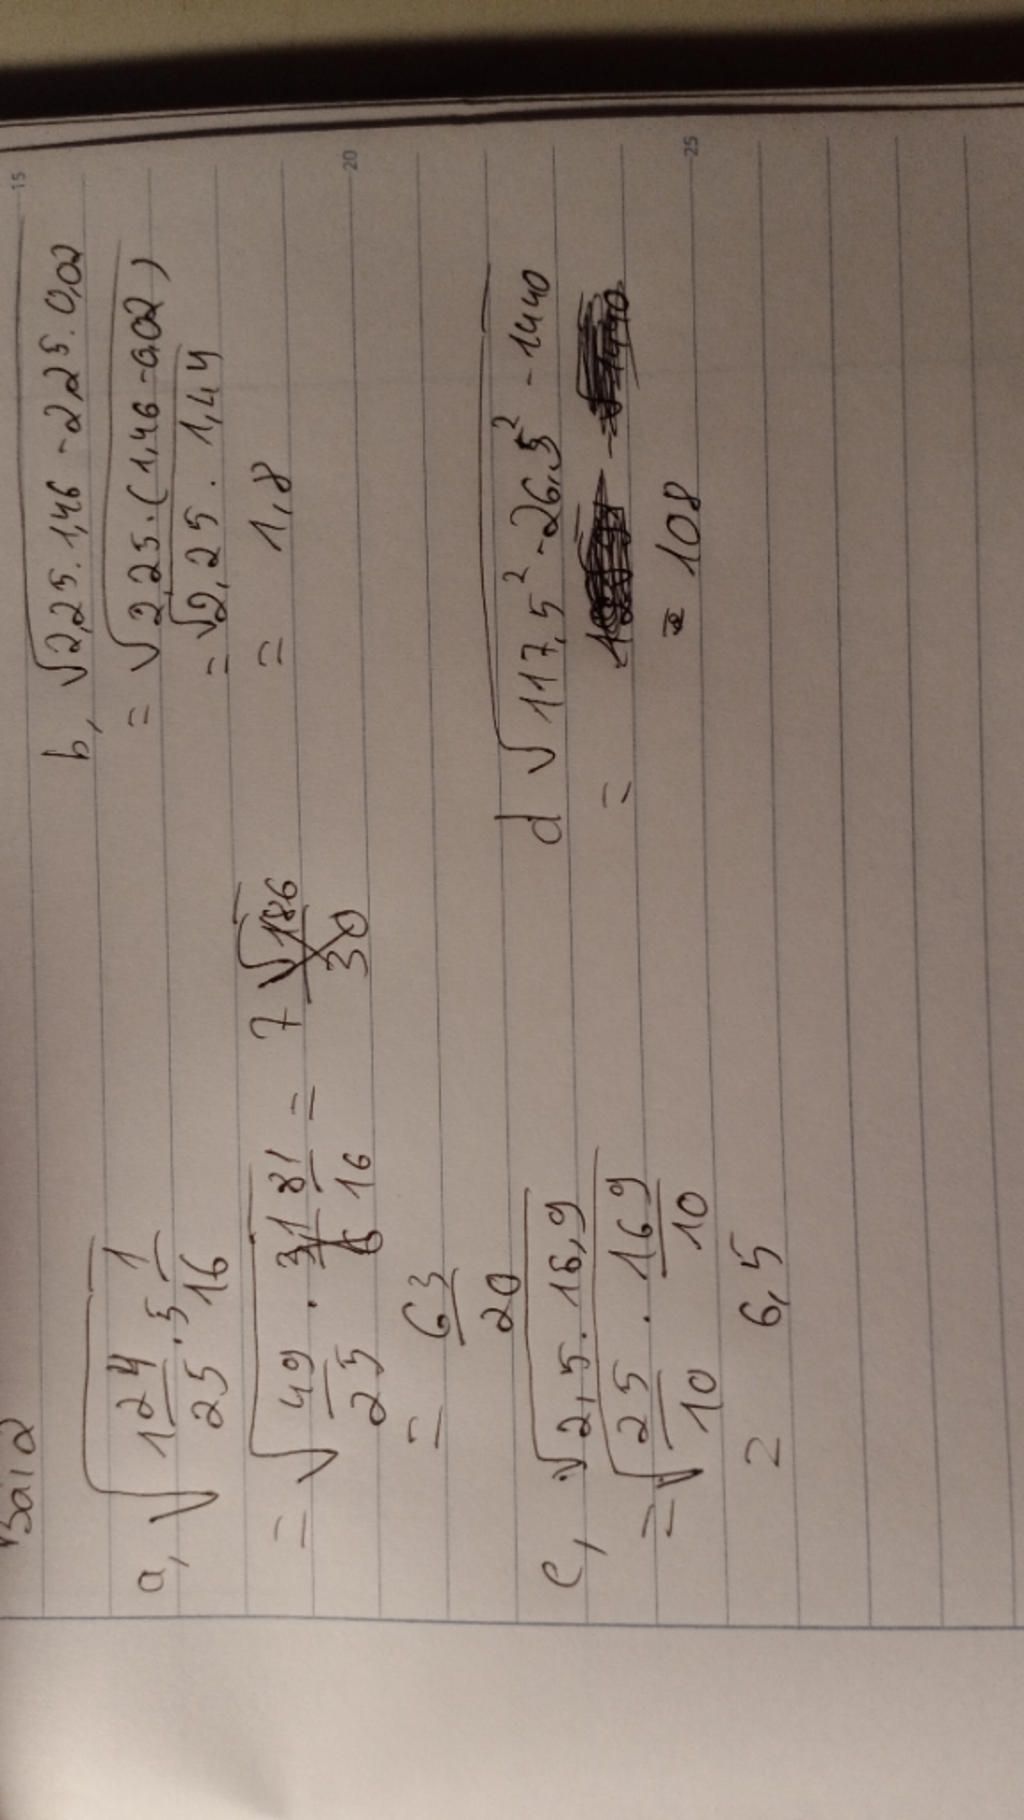 Bài 2
a, √(1 24/25 · 5 1/16)
= √(49/25 · 81/16) = 7
= 63/20
b, √2,25 . 1,46 - 2,25 . 0,02
= √2,25 . (1,46 - 0,02)
= √2,25 . 1,44
= 1,8
c, √2,5 . 16,9
= √(25/10 . 169/10)
= 6,5
d √117,5² - 26,5² - 1440
=
= 108
15
20
25